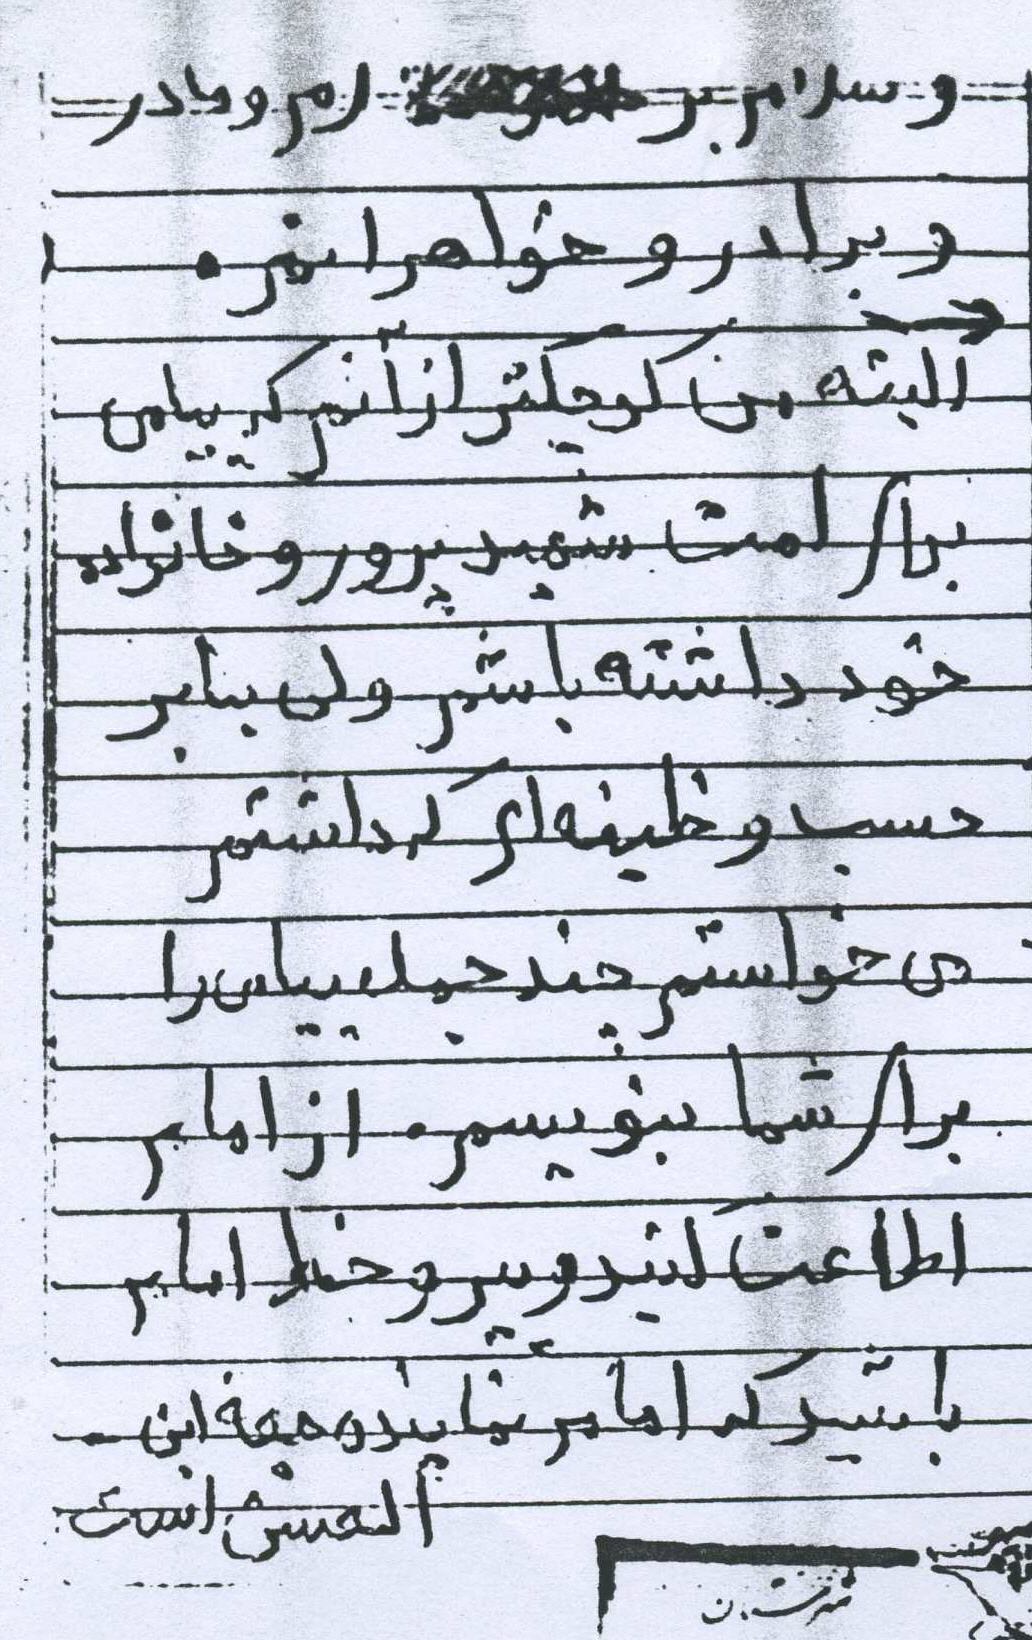 و سلام بر لرم و مادر
و برادر و خواهرانم .
البته من کوچکتر از آنم که پیامی
برای امت شهید پرور و خانواده
خود داشته باشم ولی بنابر
حسب وظیفه ای که داشتم
می خواستم چند جمله پیامی را
برای شما بنویسم . از امام
اطاعت کنید و پیرو خط امام
باشید که امام نماینده حجة ابن
الحسن است